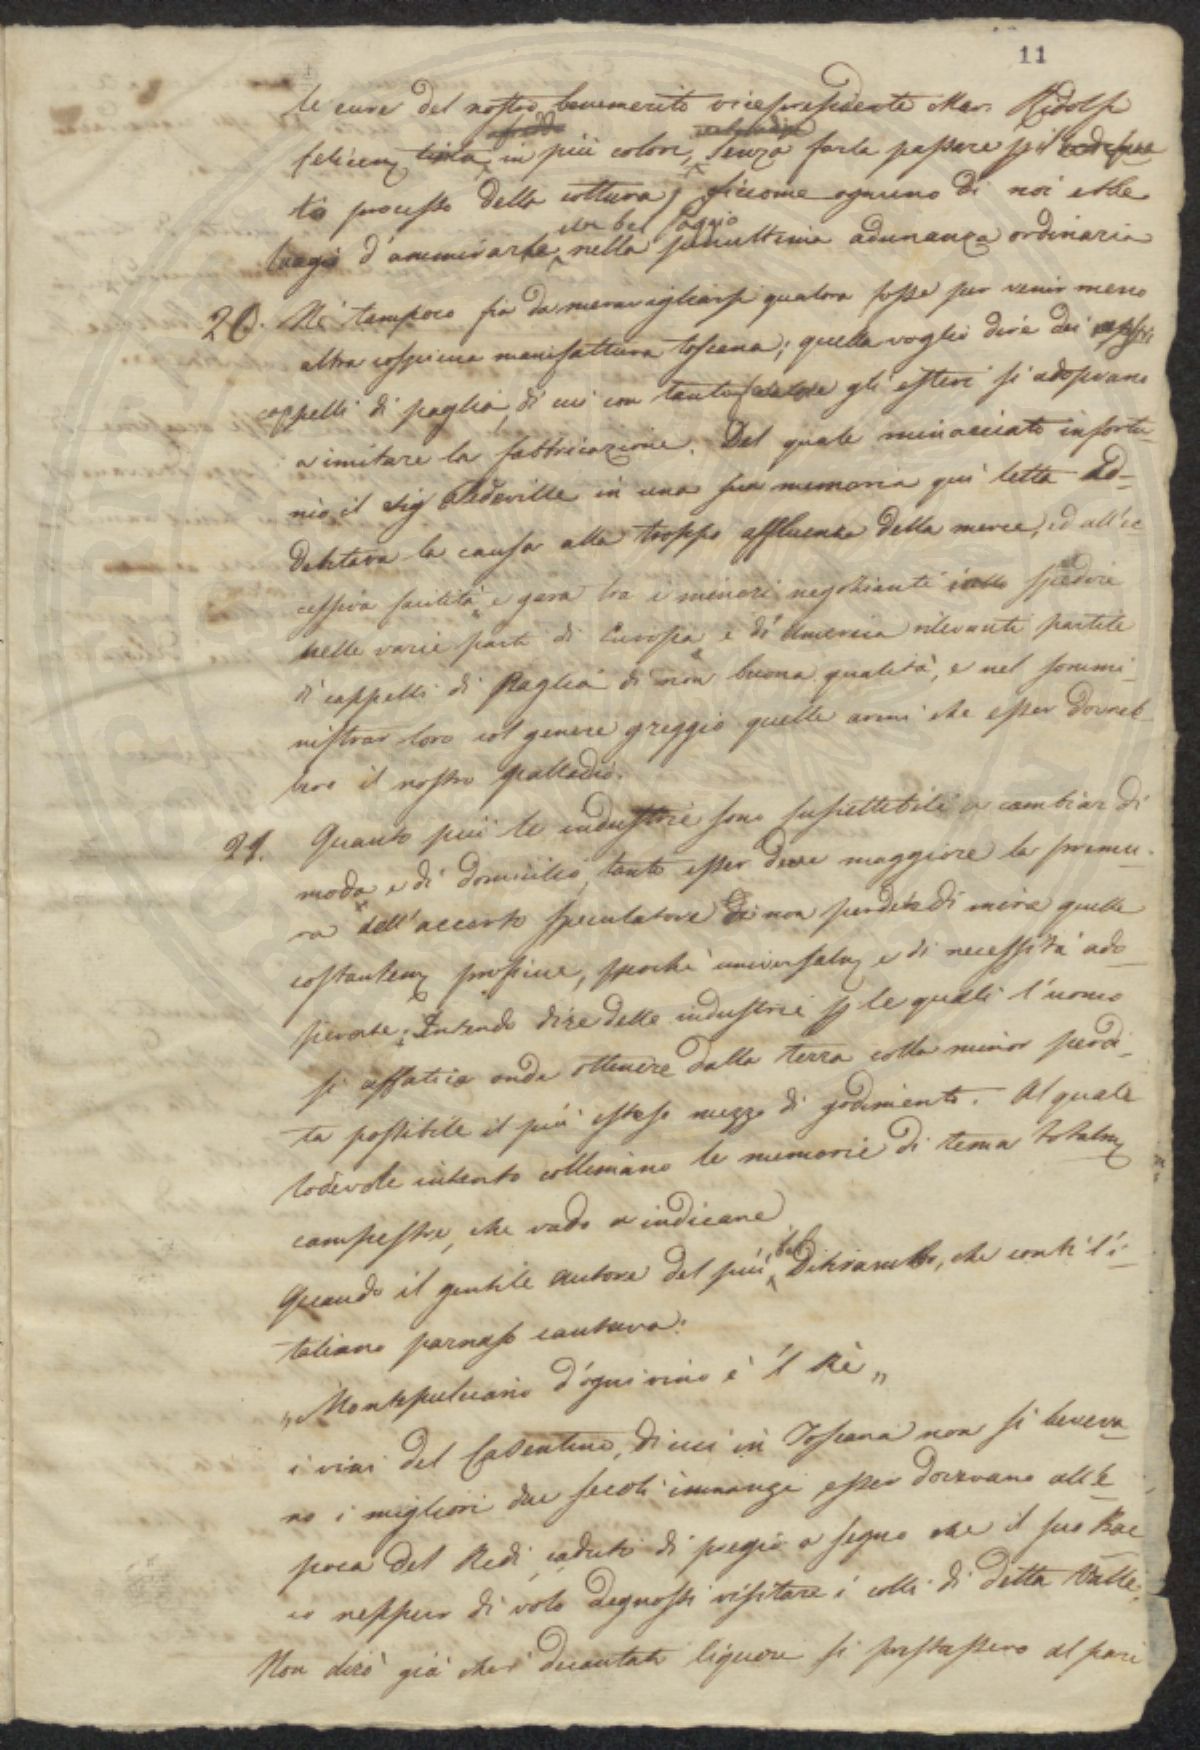 11
le cure del nostro benemerito vicepresidente Mar. Ridolfi
felicem. tinta in più colori, senza farla passare pel
to processo della cottura, siccome ognuno di noi ebbe
luogo d'ammirarne un bel saggio nella penultima adunanza ordinaria
20. Nè tampoco fia da meravigliarsi qualora fosse per venir meno
altra cospicua manifattura toscana; quella voglio dire dei nostri
cappelli di paglia, di cui con tanto calore gli esteri si adoprano
a imitare la fabbricazione. Del quale minacciato infortu-
nio il Sig. in una sua memoria qui letta ad-
debitava la causa alla troppo affluenza della merce, ed all'ec
cessiva facilità e gara tra i minori negozianti spedire
nelle varie parti di Europa e di America rilevanti partite
di cappelli di Paglia di non buona qualità, e nel sommi-
nistrar loro col genere greggio quelle armi che esser dovreb-
bero il nostro palladio.
21. Quanto più le industrie sono suscettibili a cambiar di
moda e di domicilio, tanto esser deve maggiore la premu-
ra dell'accorto speculatore di non perder di mira quelle
costantem. proficue, perchè universalm. e di necessità ado-
perate; Intendo dire delle industrie p le quali l'uomo
si affatica onde ottenere dalla terra colla minor perdi-
ta possibile il più esteso mezzo di godimento. Al quale
lodevole intento collimano le memorie di tema totalm.
campestre, che vado a indicare
Quando il gentile autore del più bel Ditirambo, che conti l'i-
taliano parnaso cantava:
„Montepulciano d'ogni vino è 'l Rè„
i vini del Casentino, di cui in Toscana non si beveva-
no i migliori due secoli innanzi esser dovevano all'e-
poca del Redi, caduti di pregio a segno che il suo Bac
co neppur di volo degnossi visitare i colli di detta Valle.
Non dirò già che i decantati liquori si prestassero al pari